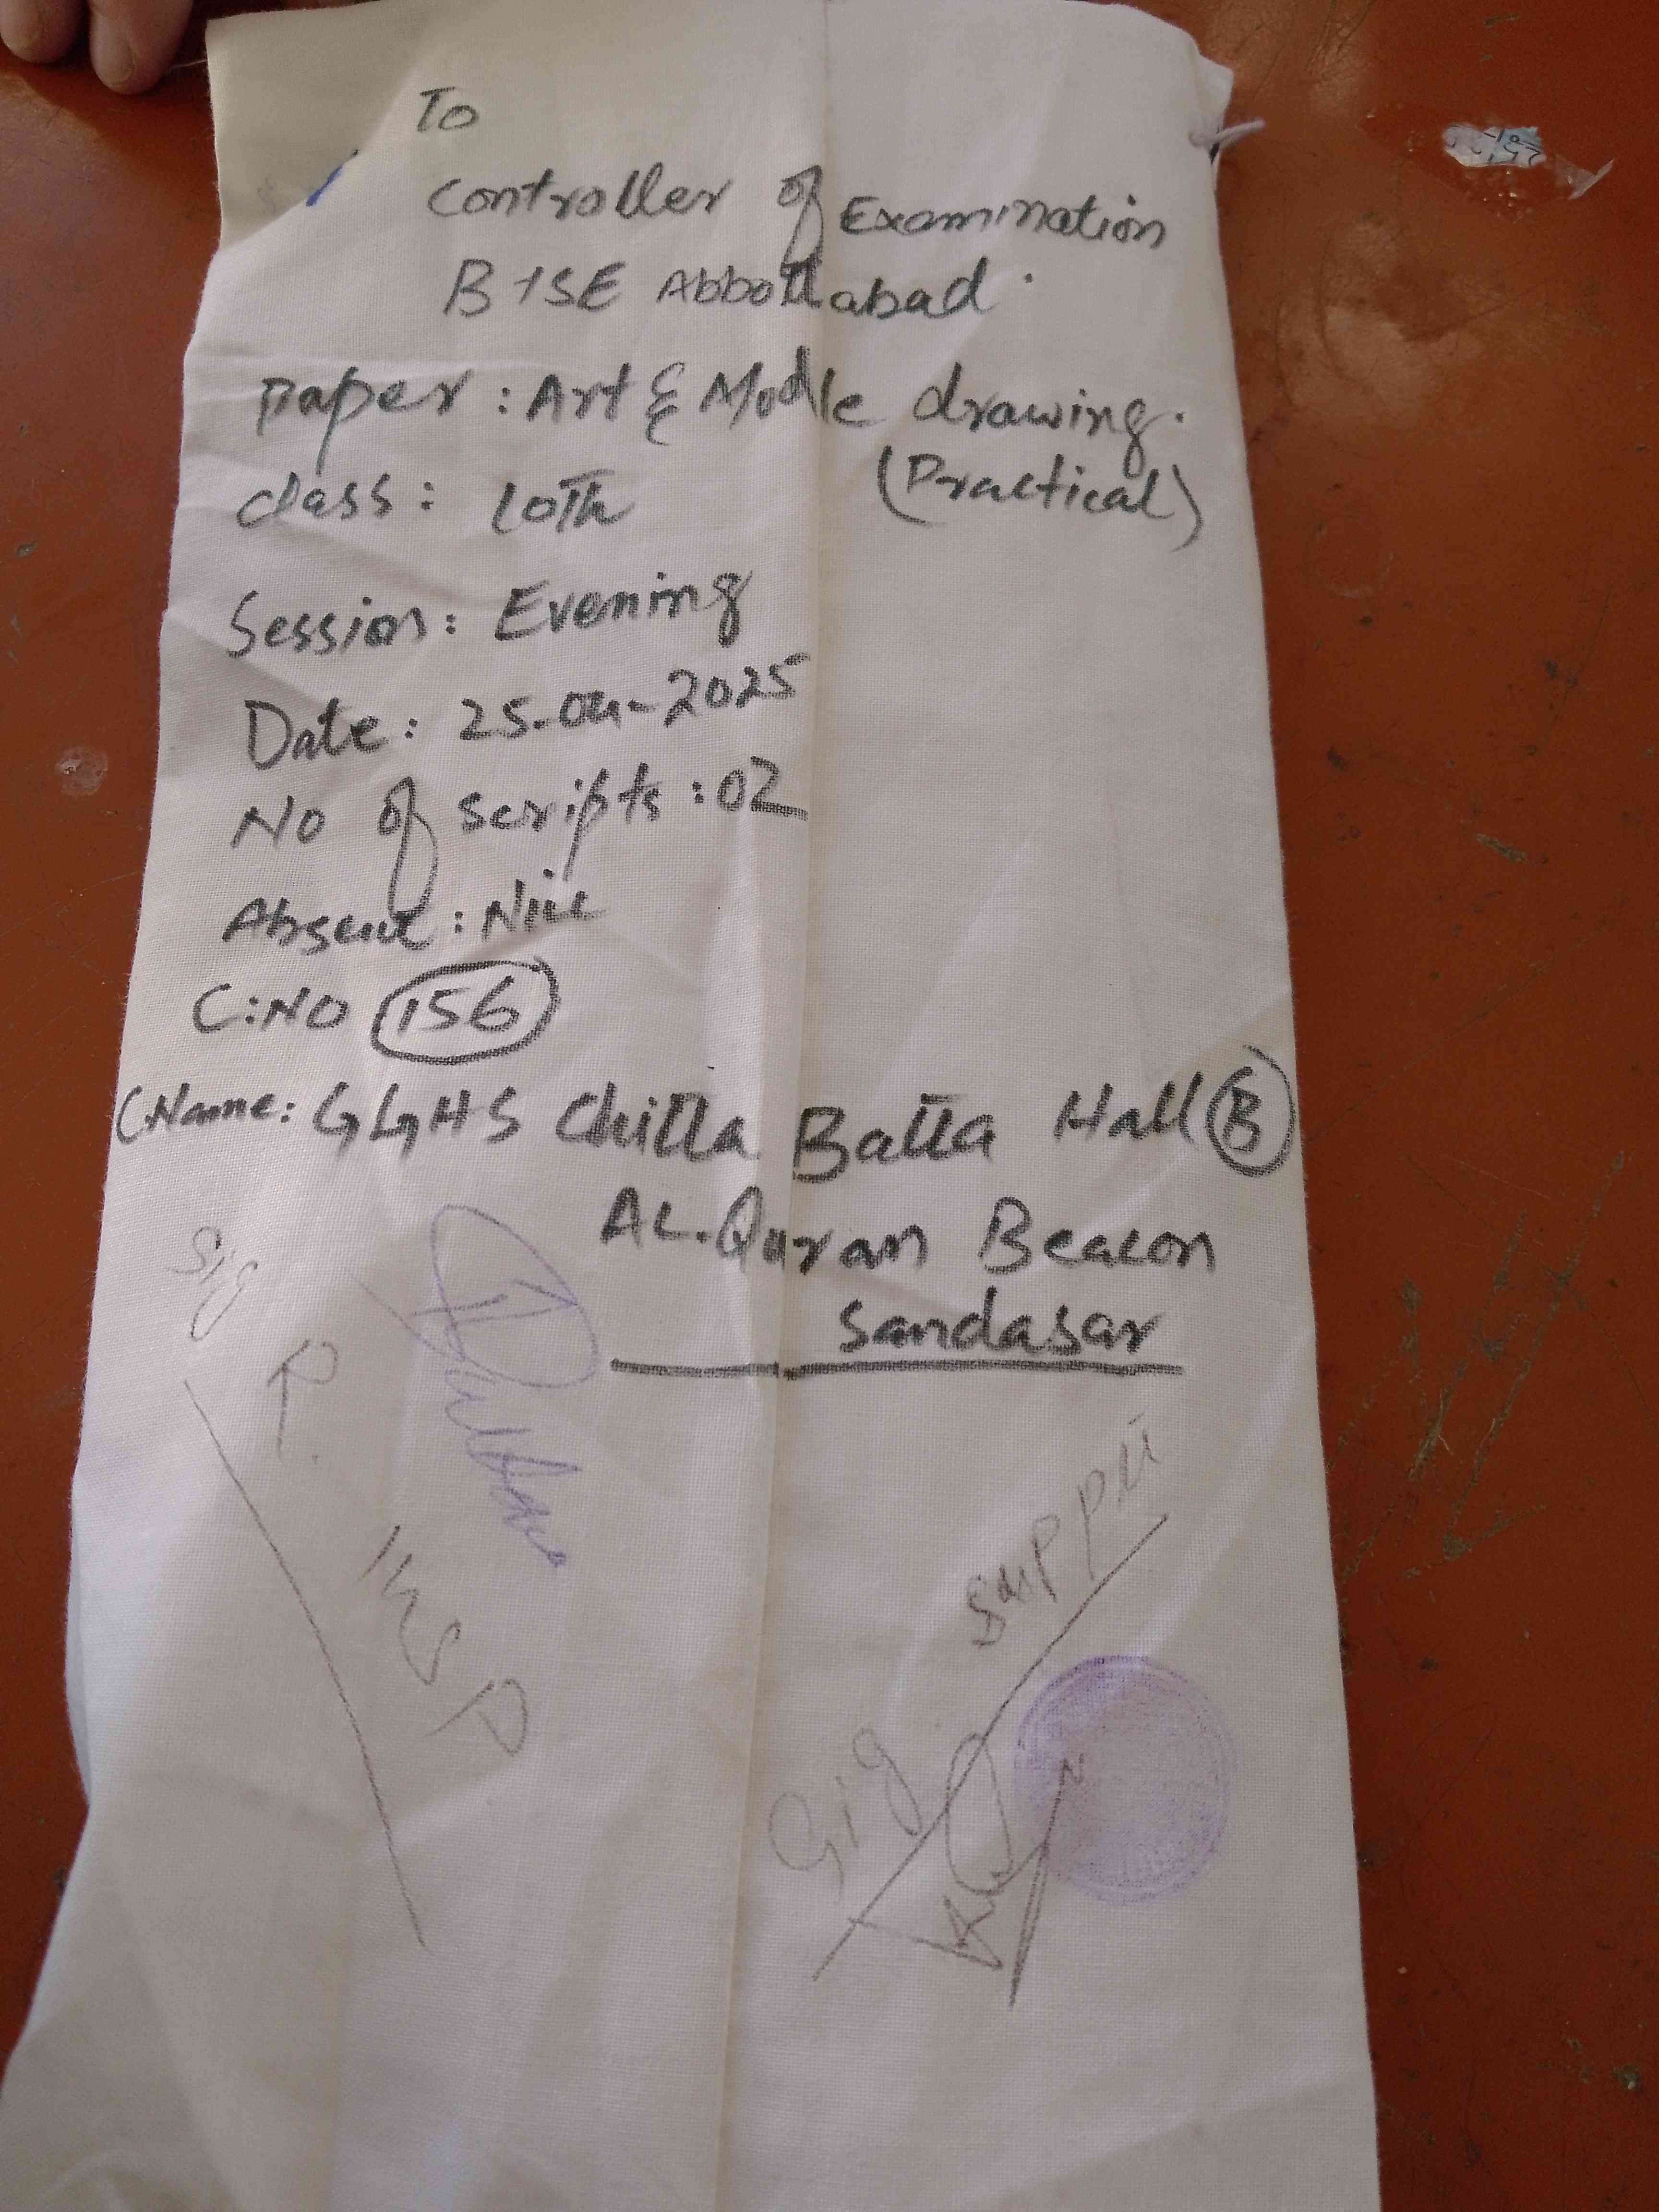 To
Controller of Examination
BISE Abbottabad.
Paper: Art & Modle drawing.
(Practical)
Class: 10th
Session: Evening
Date: 25-04-2025
No of scripts: 02
Absent: Nill
C:NO 156
CName: GGHS Chitta Batta Hall B
AL.Quran Beacon
Sandasar
Sig
R. Insp
Sig